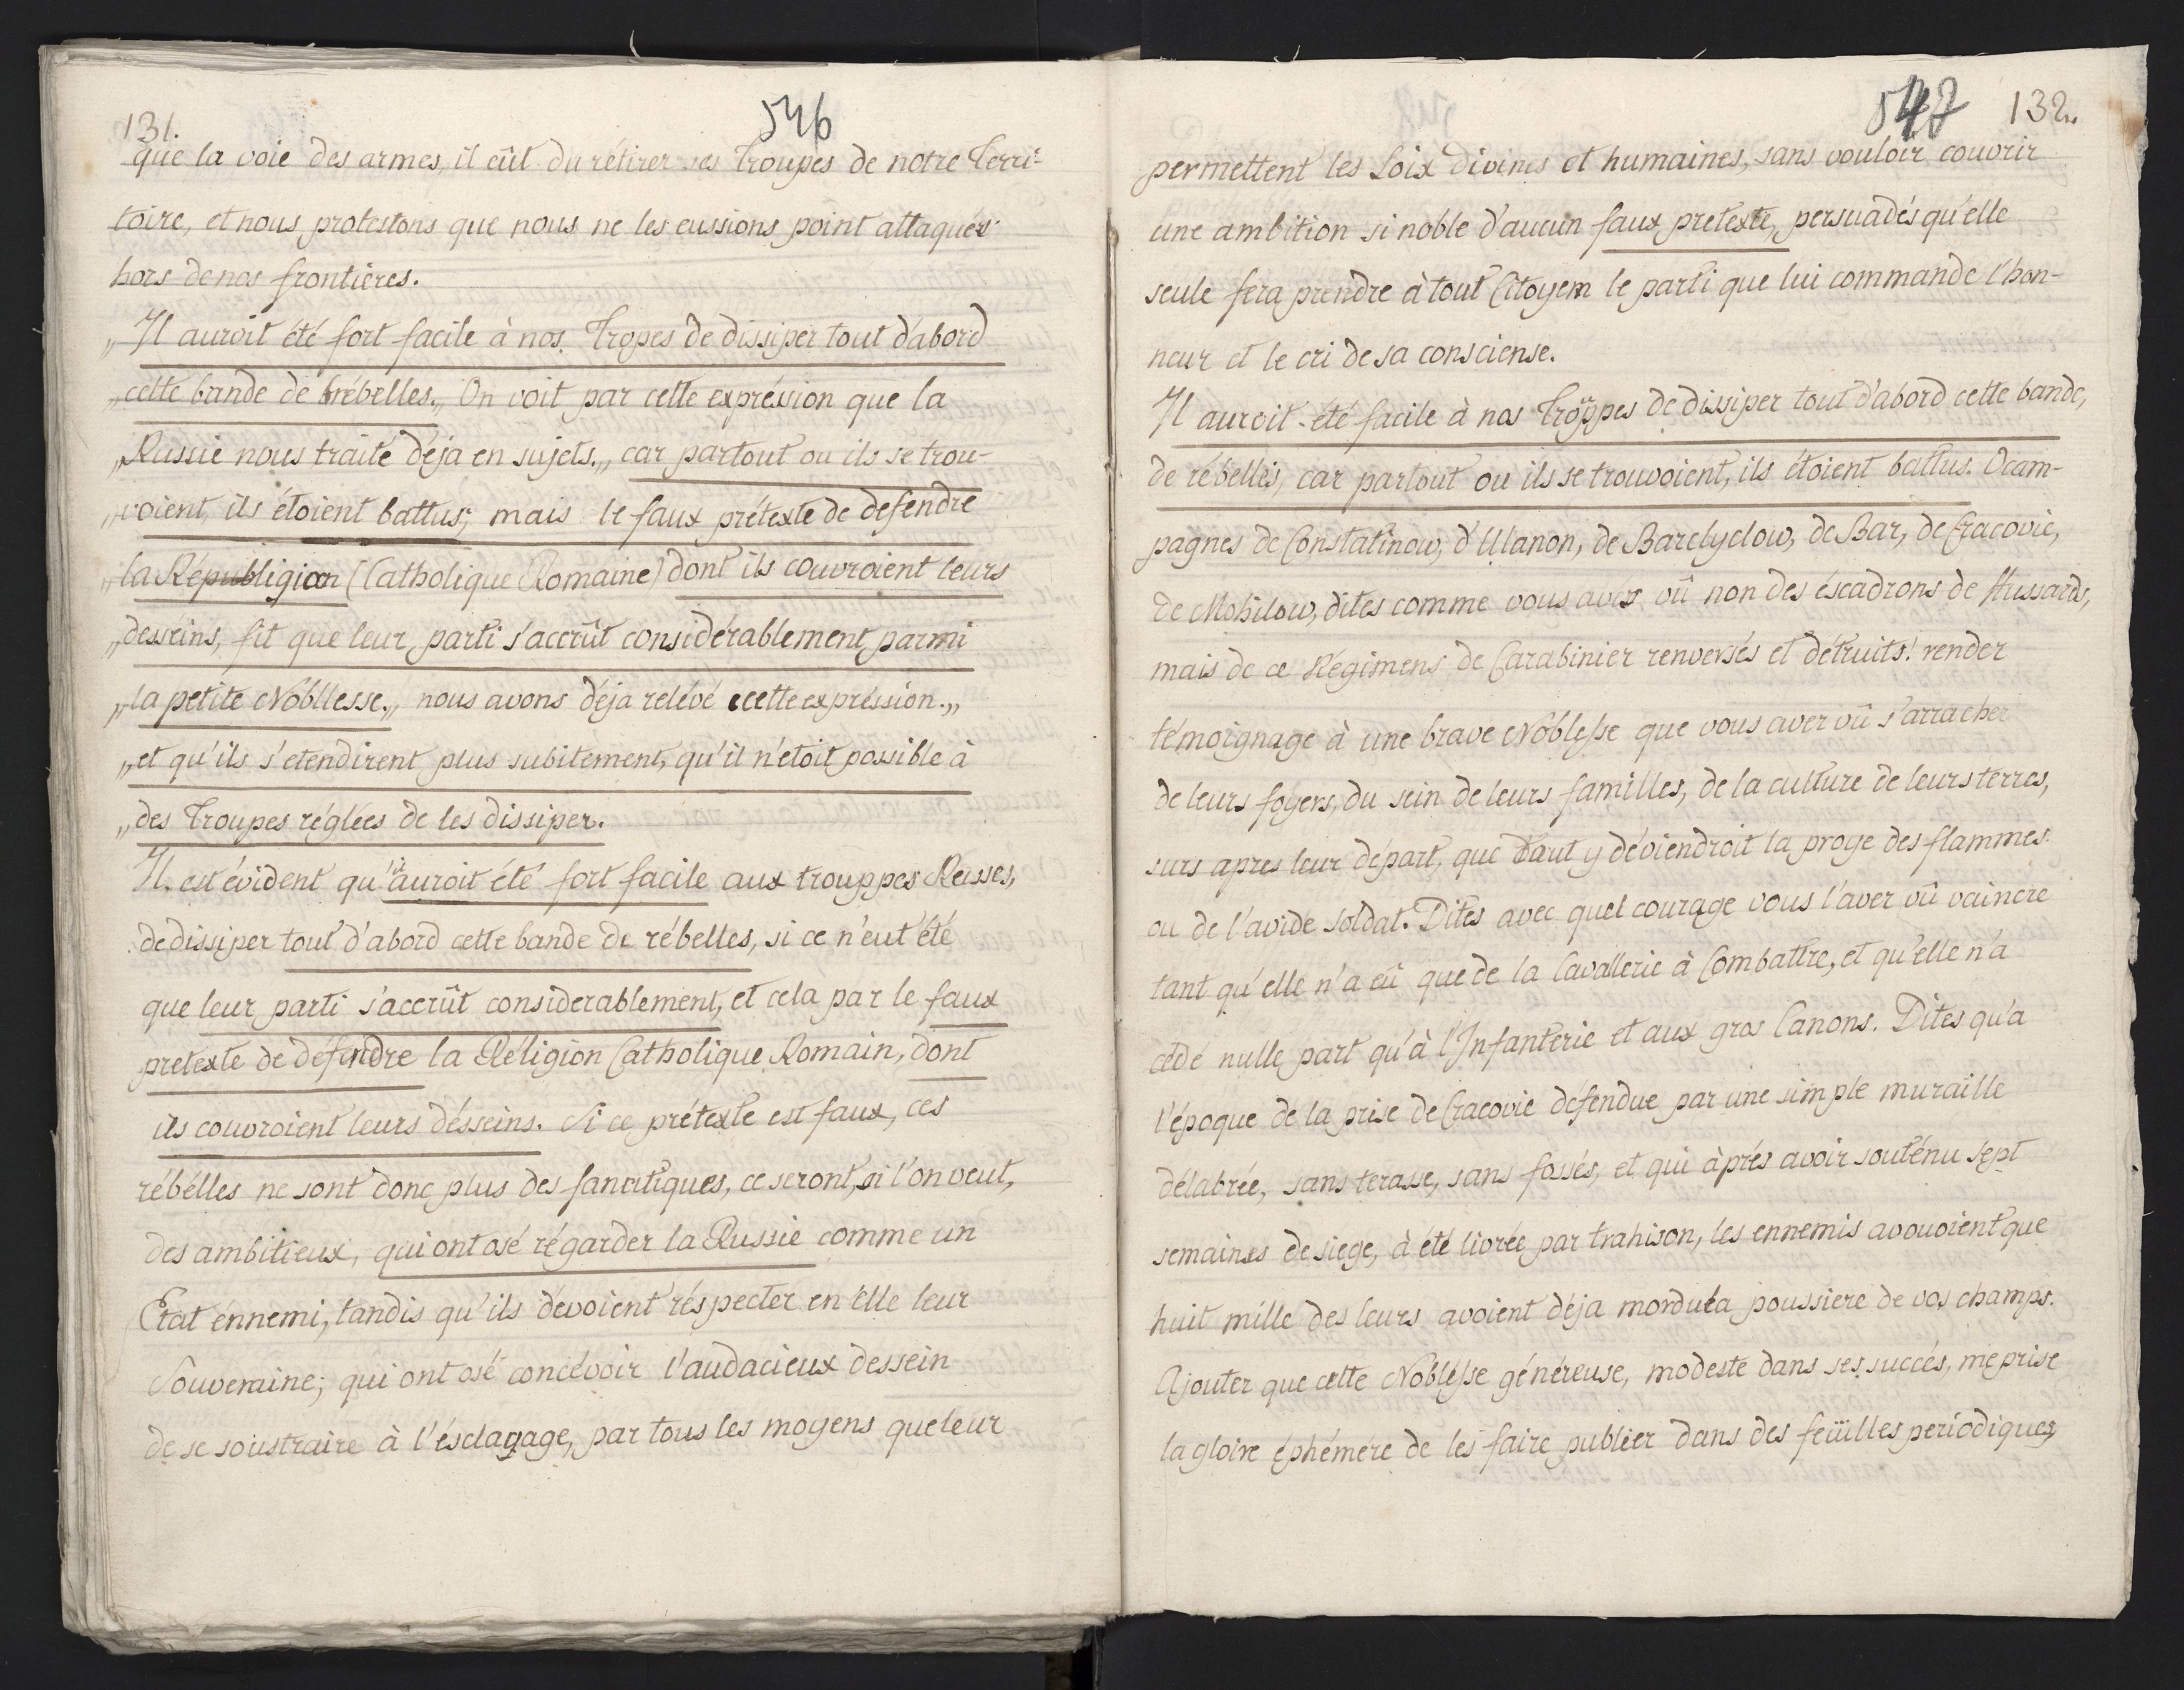 131.
546
que la voie des armes, il eût du rétirer ses Troupes de notre Terri-
toire, et nous protestons que nous ne les eussions point attaqués
hors de nos frontières.
„Il auroit été fort facile à nos Tropes de dissiper tout d'abord
„cette bande de rébelles.„ On voit par cette expréssion que la
„Russie nous traite déja en sujets.„ car partout ou ils se trou-
„voient, ils étoient battus; mais le faux prétexte de defendre
„la Réligion (Catholique Romaine) dont ils couvroient leurs
„desseins, fit que leur parti s'accrût considérablement parmi
„la petite Nobllesse.„ nous avons déja relévé cette expréssion.„
„et qu'ils s'etendirent plus subitement, qu'il n'etoit possible à
„des Troupes réglées de les dissiper.
Il est évident qu'il auroit été fort facile aux trouppes Russes,
de dissiper tout d'abord cette bande de rébelles, si ce n'eut été
que leur parti s'accrût considerablement, et cela par le faux
pretexte de défendre la Réligion Catholique Romain, dont
ils couvroient leurs désseins. Si ce prétexte est faux, ces
rébélles ne sont donc plus des fanatiques, ce seront, si l'on veut,
des ambitieux, qui ont osé régarder la Russie comme un
Etat énnemi, tandis qu'ils dévoient réspecter en élle leur
Souveraine; qui ont osé concévoir l'audacieux dessein
de se soustraire à l'ésclavage, par tous les moyens que leur
547
132.
permettent les Loix divines et humaines, sans vouloir couvrir
une ambition si noble d'aucun faux pretexte, persuadés qu'elle
seule fera prendre à tout Citoyem le parti que lui commande l'hon-
neur et le cri de sa consciense.
Il auroit été facile à nos Troppes de dissiper tout d'abord cette bande,
de rébelles, car partout ou ils se trouvoient, ils étoient battus. O cam-
pagnes de Constatinow, d'Ulanon, de Barclyclow, de Bar, de Cracovie,
de Mohilow, dites comme vous avés vû non des éscadrons de Hussards,
mais de ce Régimens de Carabinier renversés et détruits! render
témoignage à une brave Noblesse que vous aver vû s'arracher
de leurs foyers, du sein de leurs familles, de la culture de leurs terres,
surs apres leur départ, que taut y déviendroit la proye des flammes
ou de l'avide soldat. Dites avec quel courage vous l'aver vû vaincre
tant qu'elle n'a eû que de la Cavallerie à Combattre, et qu'elle n'a
cédé nulle part qu'à l'Infanterie et aux gros Canons. Dites qu'a
l'époque de la prise de Cracovie défendue par une simple muraille
délabrée, sans terasse, sans fossés, et qui àprés avoir souténu sept
semaines de siege, à été livrée par trahison, les ennemis avouoient que
huit mille des leurs avoient déja mordu la poussiere de vos champs.
Ajouter que cette Noblesse généreuse, modeste dans ses succés, méprise
la gloire éphémére de les faire publier dans des feüilles periodiques